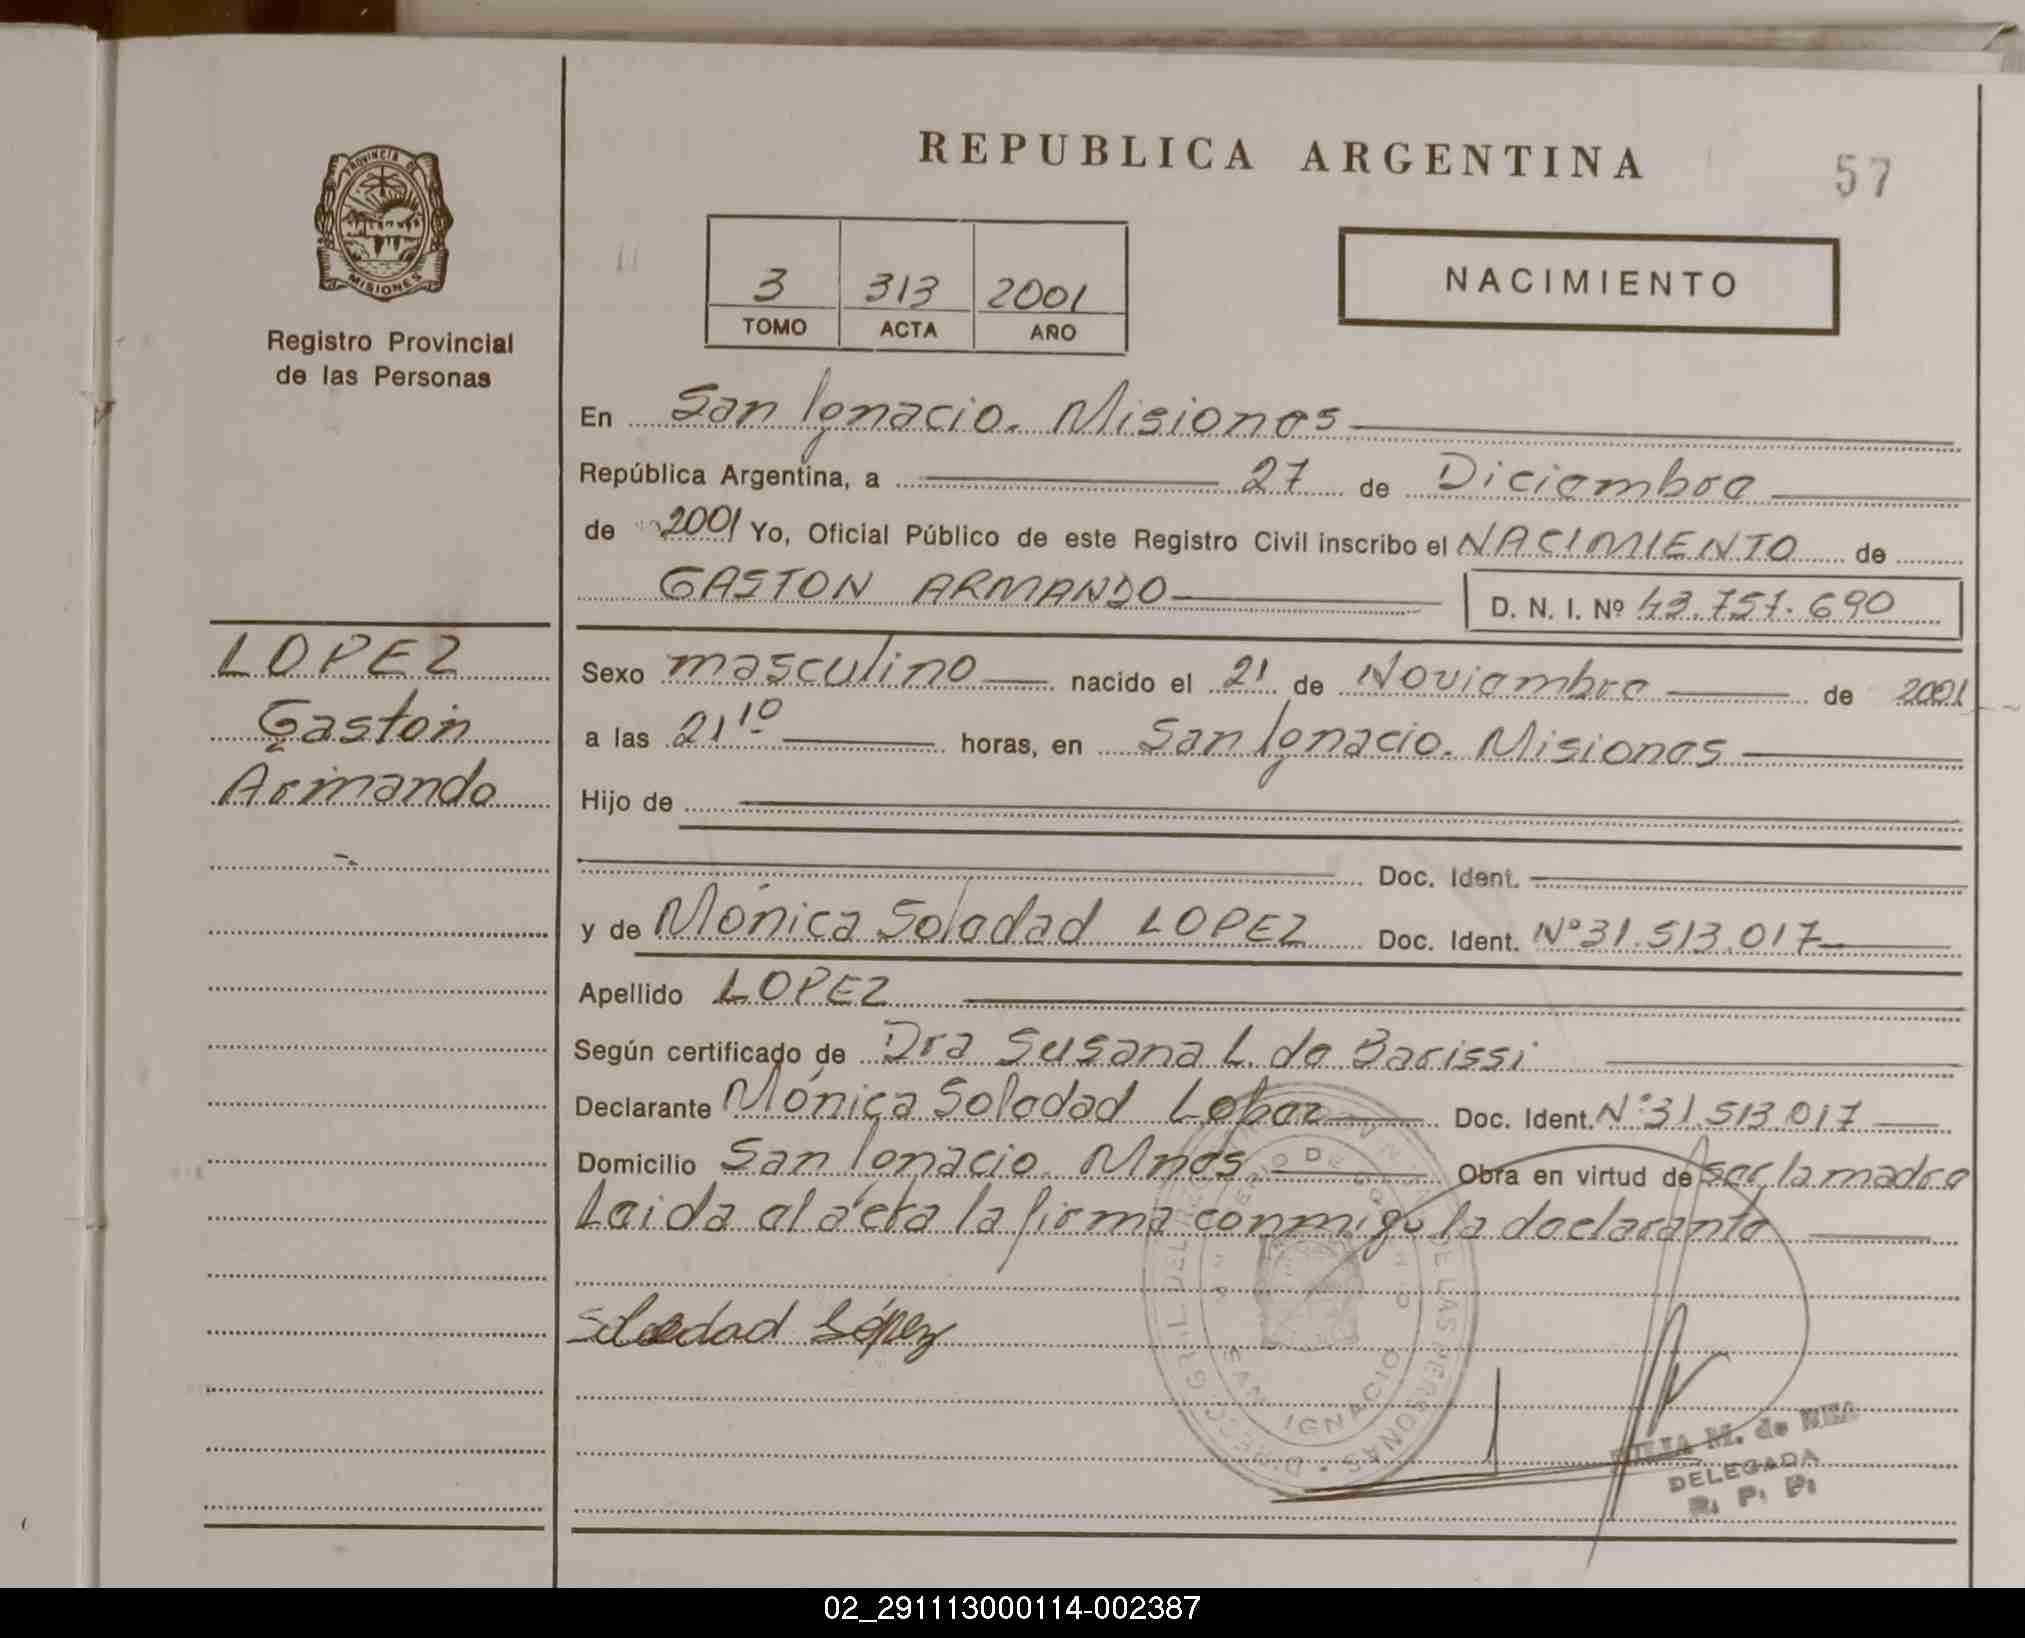 REPUBLICA ARGENTINA
57
PROVINCIA DE
MISIONES
Registro Provincial
de las Personas
3 313 2001
TOMO ACTA AÑO
NACIMIENTO
En San Ignacio. Misiones
República Argentina, a 27 de Diciembre
de 2001 Yo, Oficial Público de este Registro Civil inscribo el NACIMIENTO de
GASTON ARMANDO D. N. I. Nº 43.757.690
LOPEZ
Gastón
Armando
Sexo masculino nacido el 21 de Noviembre de 2001
a las 21 10 horas, en San Ignacio. Misiones
Hijo de
Doc. Ident.
y de Mónica Soledad LOPEZ Doc. Ident. Nº 31.513.017
Apellido LOPEZ
Según certificado de Dra Susana L. de Barissi
Declarante Mónica Soledad Lopez Doc. Ident. Nº 31.513.017
Domicilio San Ignacio. Mnes Obra en virtud de ser la madre
Leida el acta la firma conmigo la declarante
Soledad López
SAN IGNACIO
DE LAS PERSONAS
M. de REA
DELEGADA
R. P. P.
02_291113000114-002387